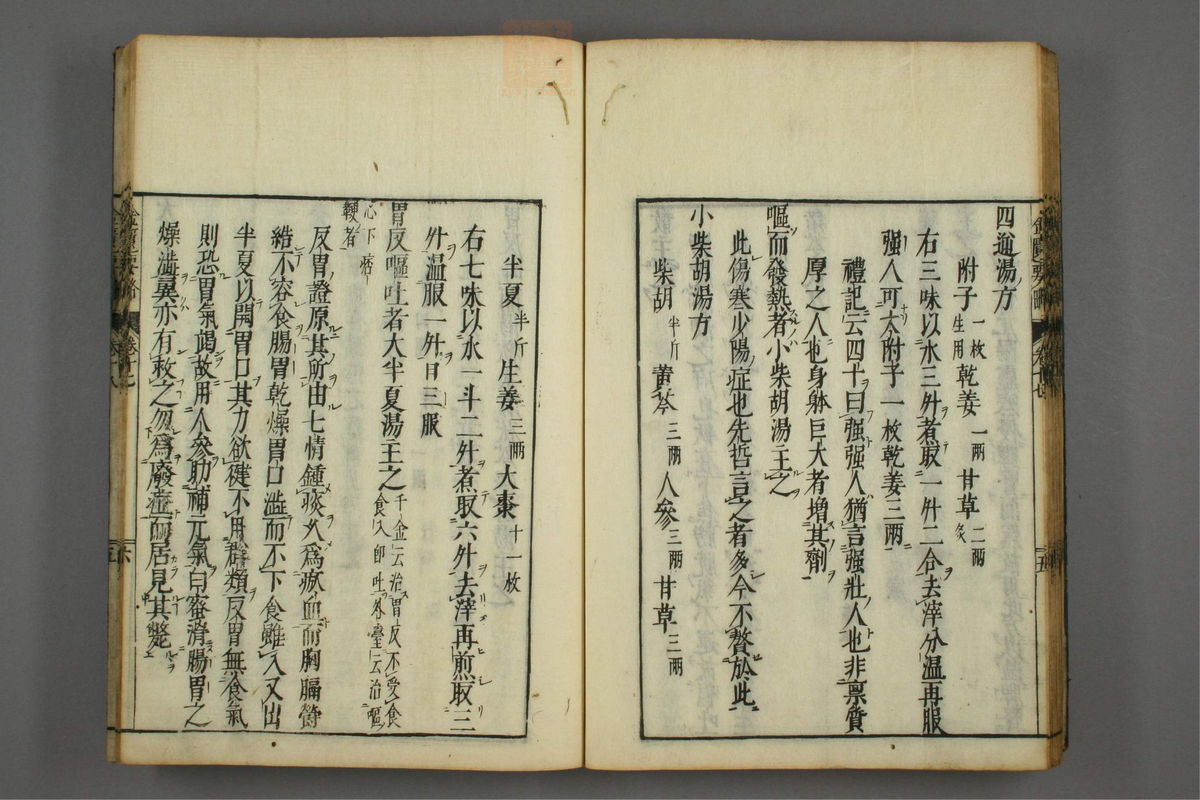 四逆湯方
附子一枚生用乾姜一兩甘草二兩炙
右三味以水三升煮取一升二合去滓分温再服
强人可大附子一枚乾姜三兩
禮記云四十曰强强人猶言强壯人也非稟質
厚之人也身躰巨大者增其劑
嘔而發熱者小柴胡湯主之
此傷寒少陽症也先哲言之者多今不贅於此
小柴胡湯方
柴胡半斤黄芩三兩人參三兩甘草三兩
半夏半斤生姜三兩大棗十一枚
右七味以水一斗二升煮取六升去滓再煎取三
升温服一升日三服
胃反嘔吐者大半夏湯主之千金云治胃反不受食食入即吐外臺云治嘔
心下痞鞕者
反胃證原其所由七情鍾痰火為瘀血而胸膈
結不容食腸胃乾燥胃口澁而不下食雖入又出
半夏以開胃口其力欲健不用群類反胃無食氣
則恐胃氣竭故用人參助補元氣白蜜滑腸胃之
燥澁冀亦有救之忽為廢症而居見其斃